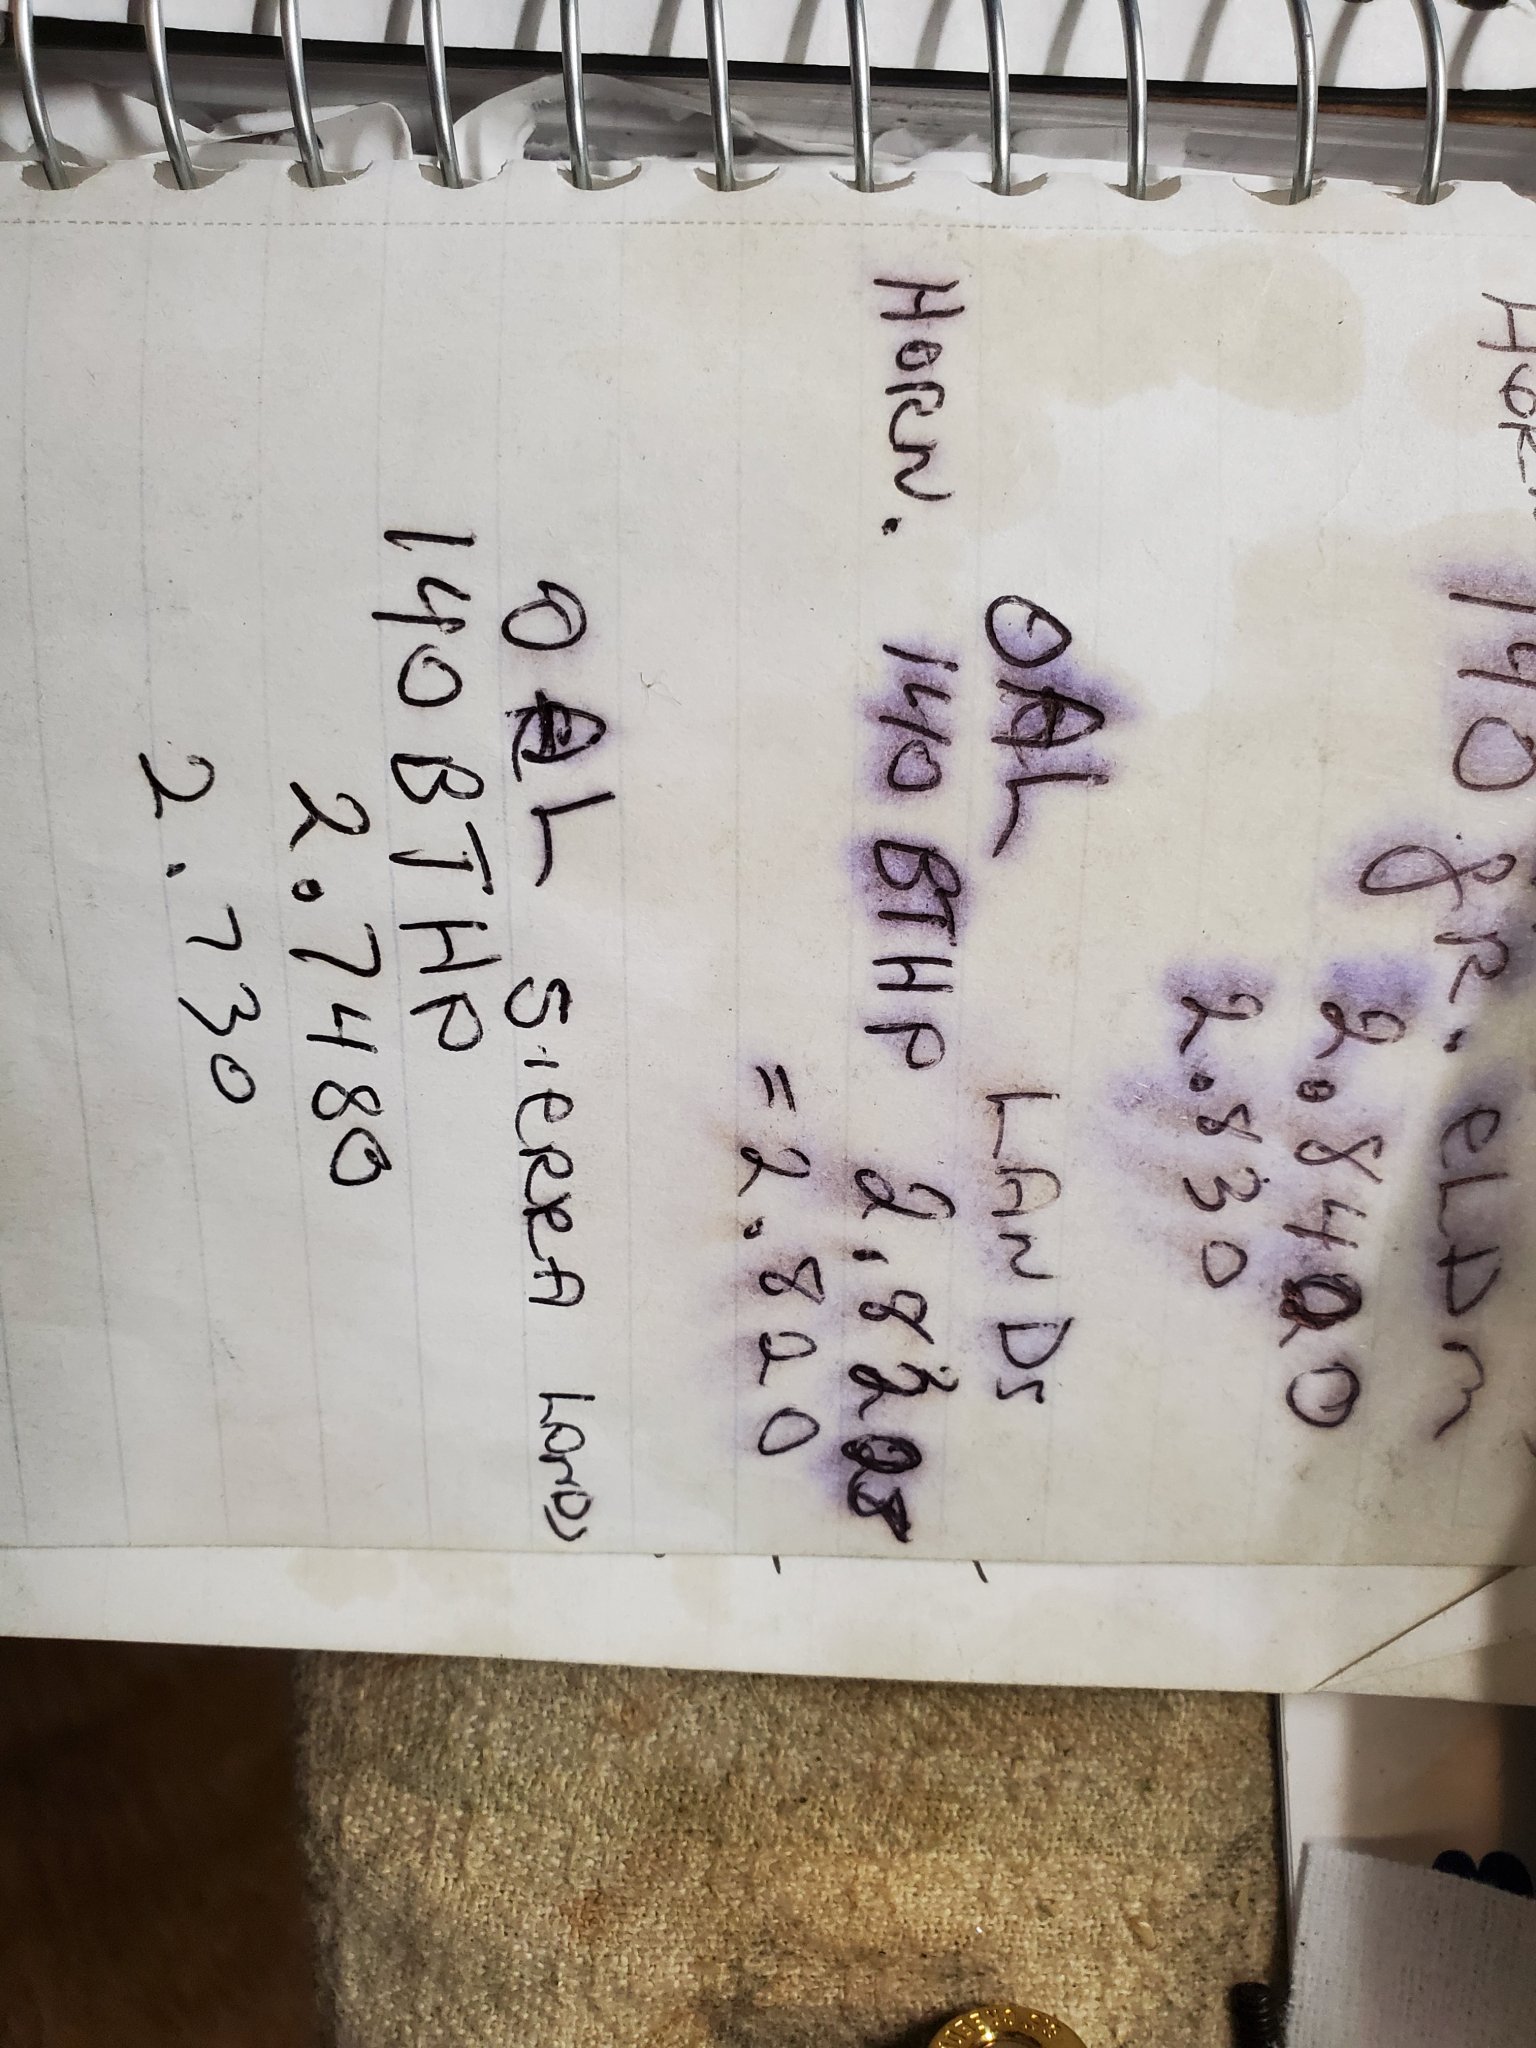 HOR.
140 gr. ELDm
2.8400
2.830
OAL LANDS
HORN. 140 BTHP
= 2.820
OAL SIERRA LANDS
140 BTHP
2.7480
2.730